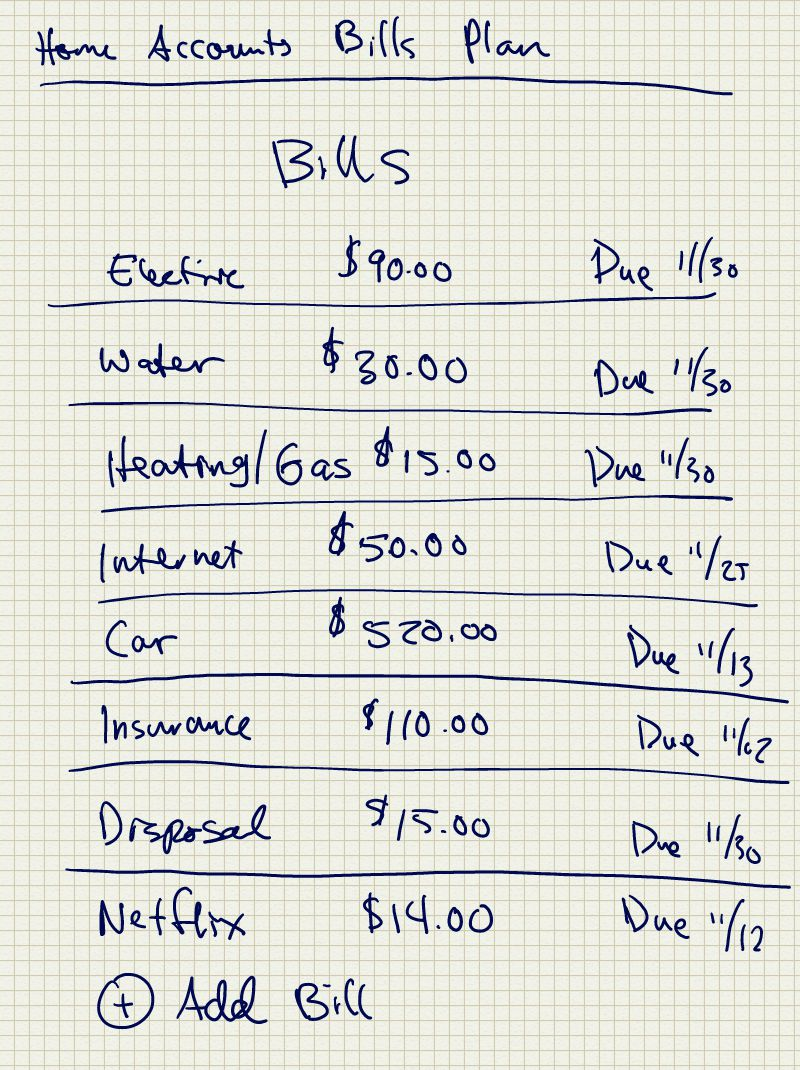 Home Accounts Bills Plan
Bills
Electric $90.00 Due 11/30
Water $30.00 Due 11/30
Heating/Gas $15.00 Due 11/30
Internet $50.00 Due 11/25
Car $520.00 Due 11/13
Insurance $110.00 Due 11/02
Disposal $15.00 Due 11/30
Netflix $14.00 Due 11/12
+ Add Bill